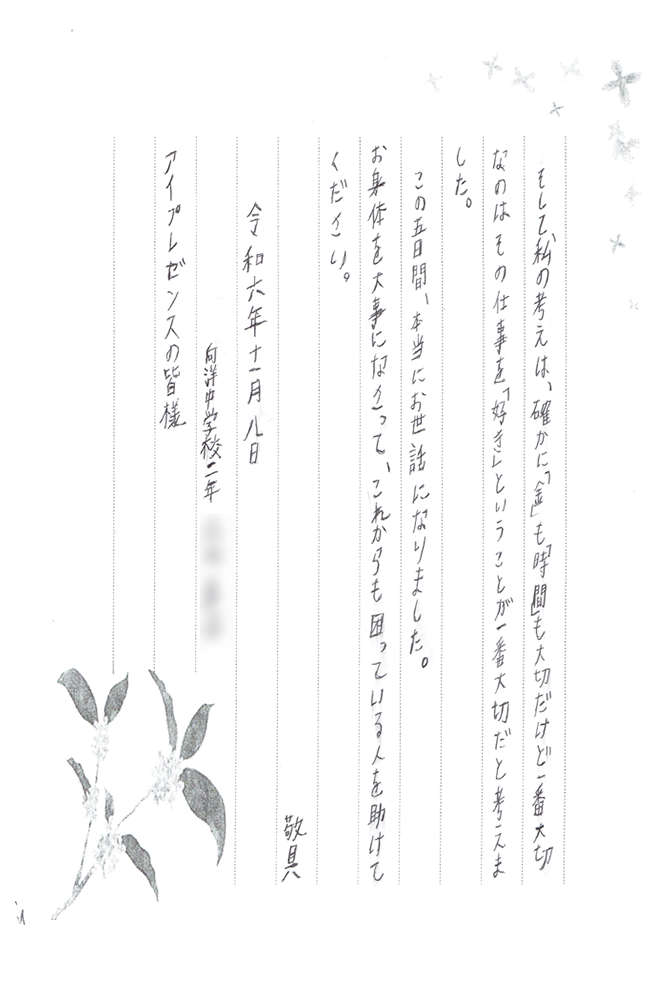 そして私の考えは、確かに「金」も「時間」も大切だけど一番大切
なのはその仕事を「好き」ということが一番大切だと考えま
した。
この五日間、本当にお世話になりました。
お身体を大事になさって、これからも困っている人を助けて
ください。
敬具
令和六年十一月八日
向洋中学校二年
アイプレゼンスの皆様